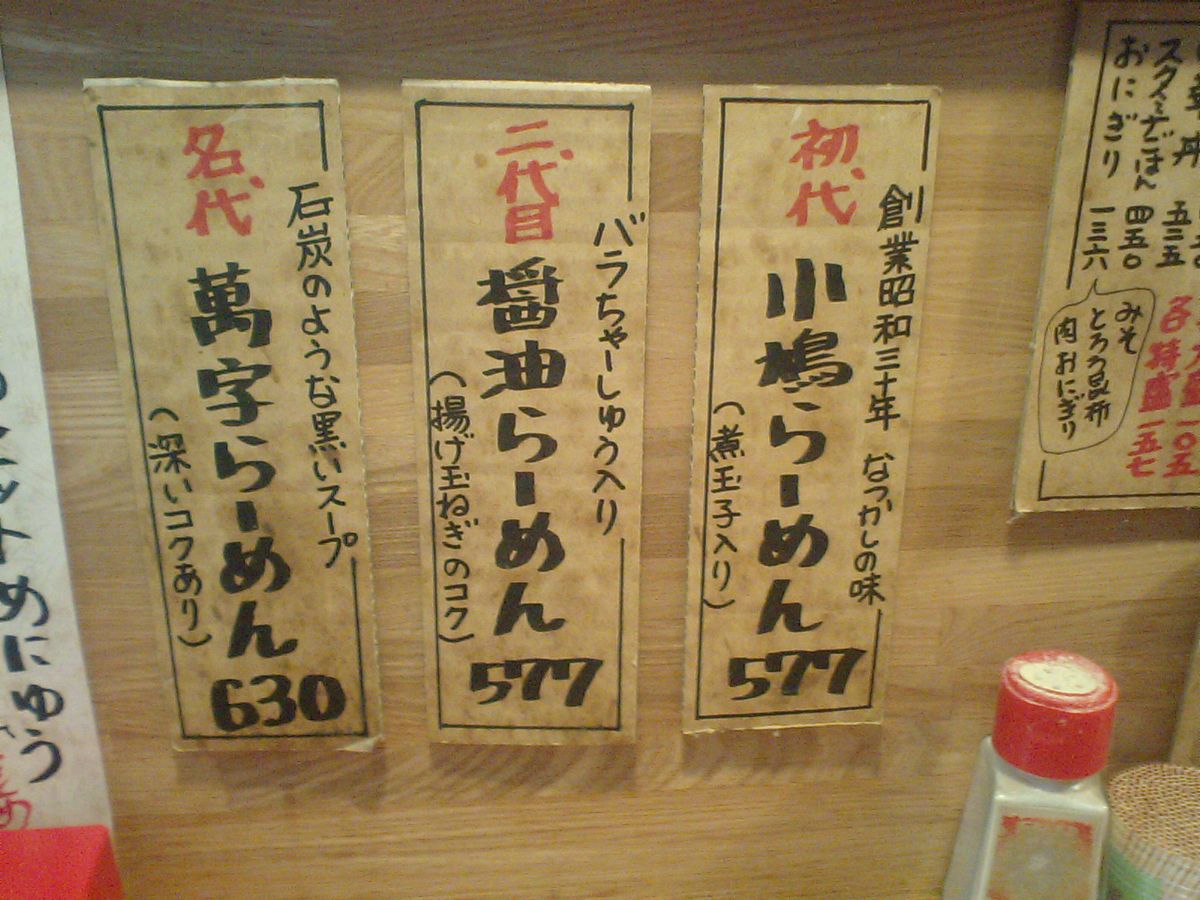 スタミナごはん 四五〇
おにぎり 一三六
みそ
とろろ昆布
肉おにぎり
各特盛 一五七
初代
創業昭和三十年 なつかしの味
小鳩らーめん 577
(煮玉子入り)
二代目
バラちゃーしゅう入り
醤油らーめん 577
(揚げ玉ねぎのコク)
名代
石炭のような黒いスープ
萬字らーめん 630
(深いコクあり)
ットめにゅう